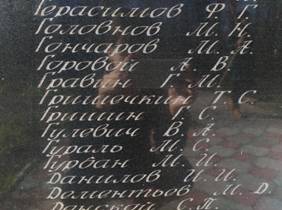 Герасимов Ф. Т.
Головнов М. Н.
Гончаров М. А.
Горовой А. В.
Гравин Г. М.
Гришечкин Т. С.
Гришин Г. С.
Гулевич В. А.
Гураль М. С.
Гурван М. И.
Данилов И. И.
Дементьев М. Д.
Донской С. П.